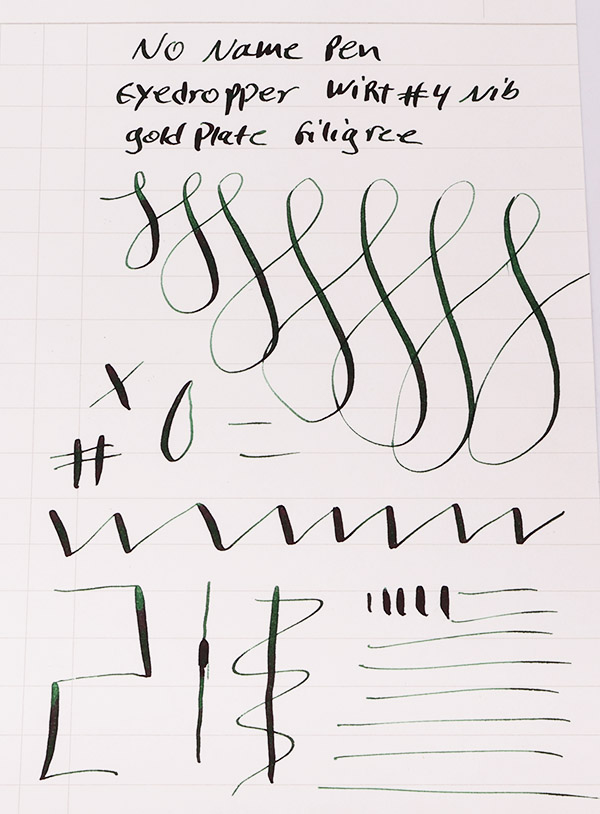 No Name Pen
Eyedropper Wirt #4 Nib
gold Plate Filigree
x 0 =
#